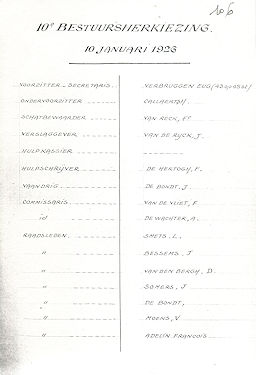 106
10e BESTUURSHERKIEZING.
10 JANUARI 1923
VOORZITTER-SECRETARIS VERBRUGGEN EUG
ONDERVOORZITTER CALLAERTS H
SCHATBEWAARDER VAN REUX, Fr
VERSLAGGEVER VAN DE RIJCK, J
HULPKASSIER
HULPSCHRIJVER DE HERTOGH, F.
VAANDRIG DE BONDT, J
COMMISSARIS VAN DE VLIET, F
id DE WACHTER, A.
RAADSLEDEN SMETS, L.
" BESSEMS, J
" VAN DEN BERGH, D.
" SOMERS, J
" DE BONDT,
" MOENS, V
" ADELIN FRANCOIS